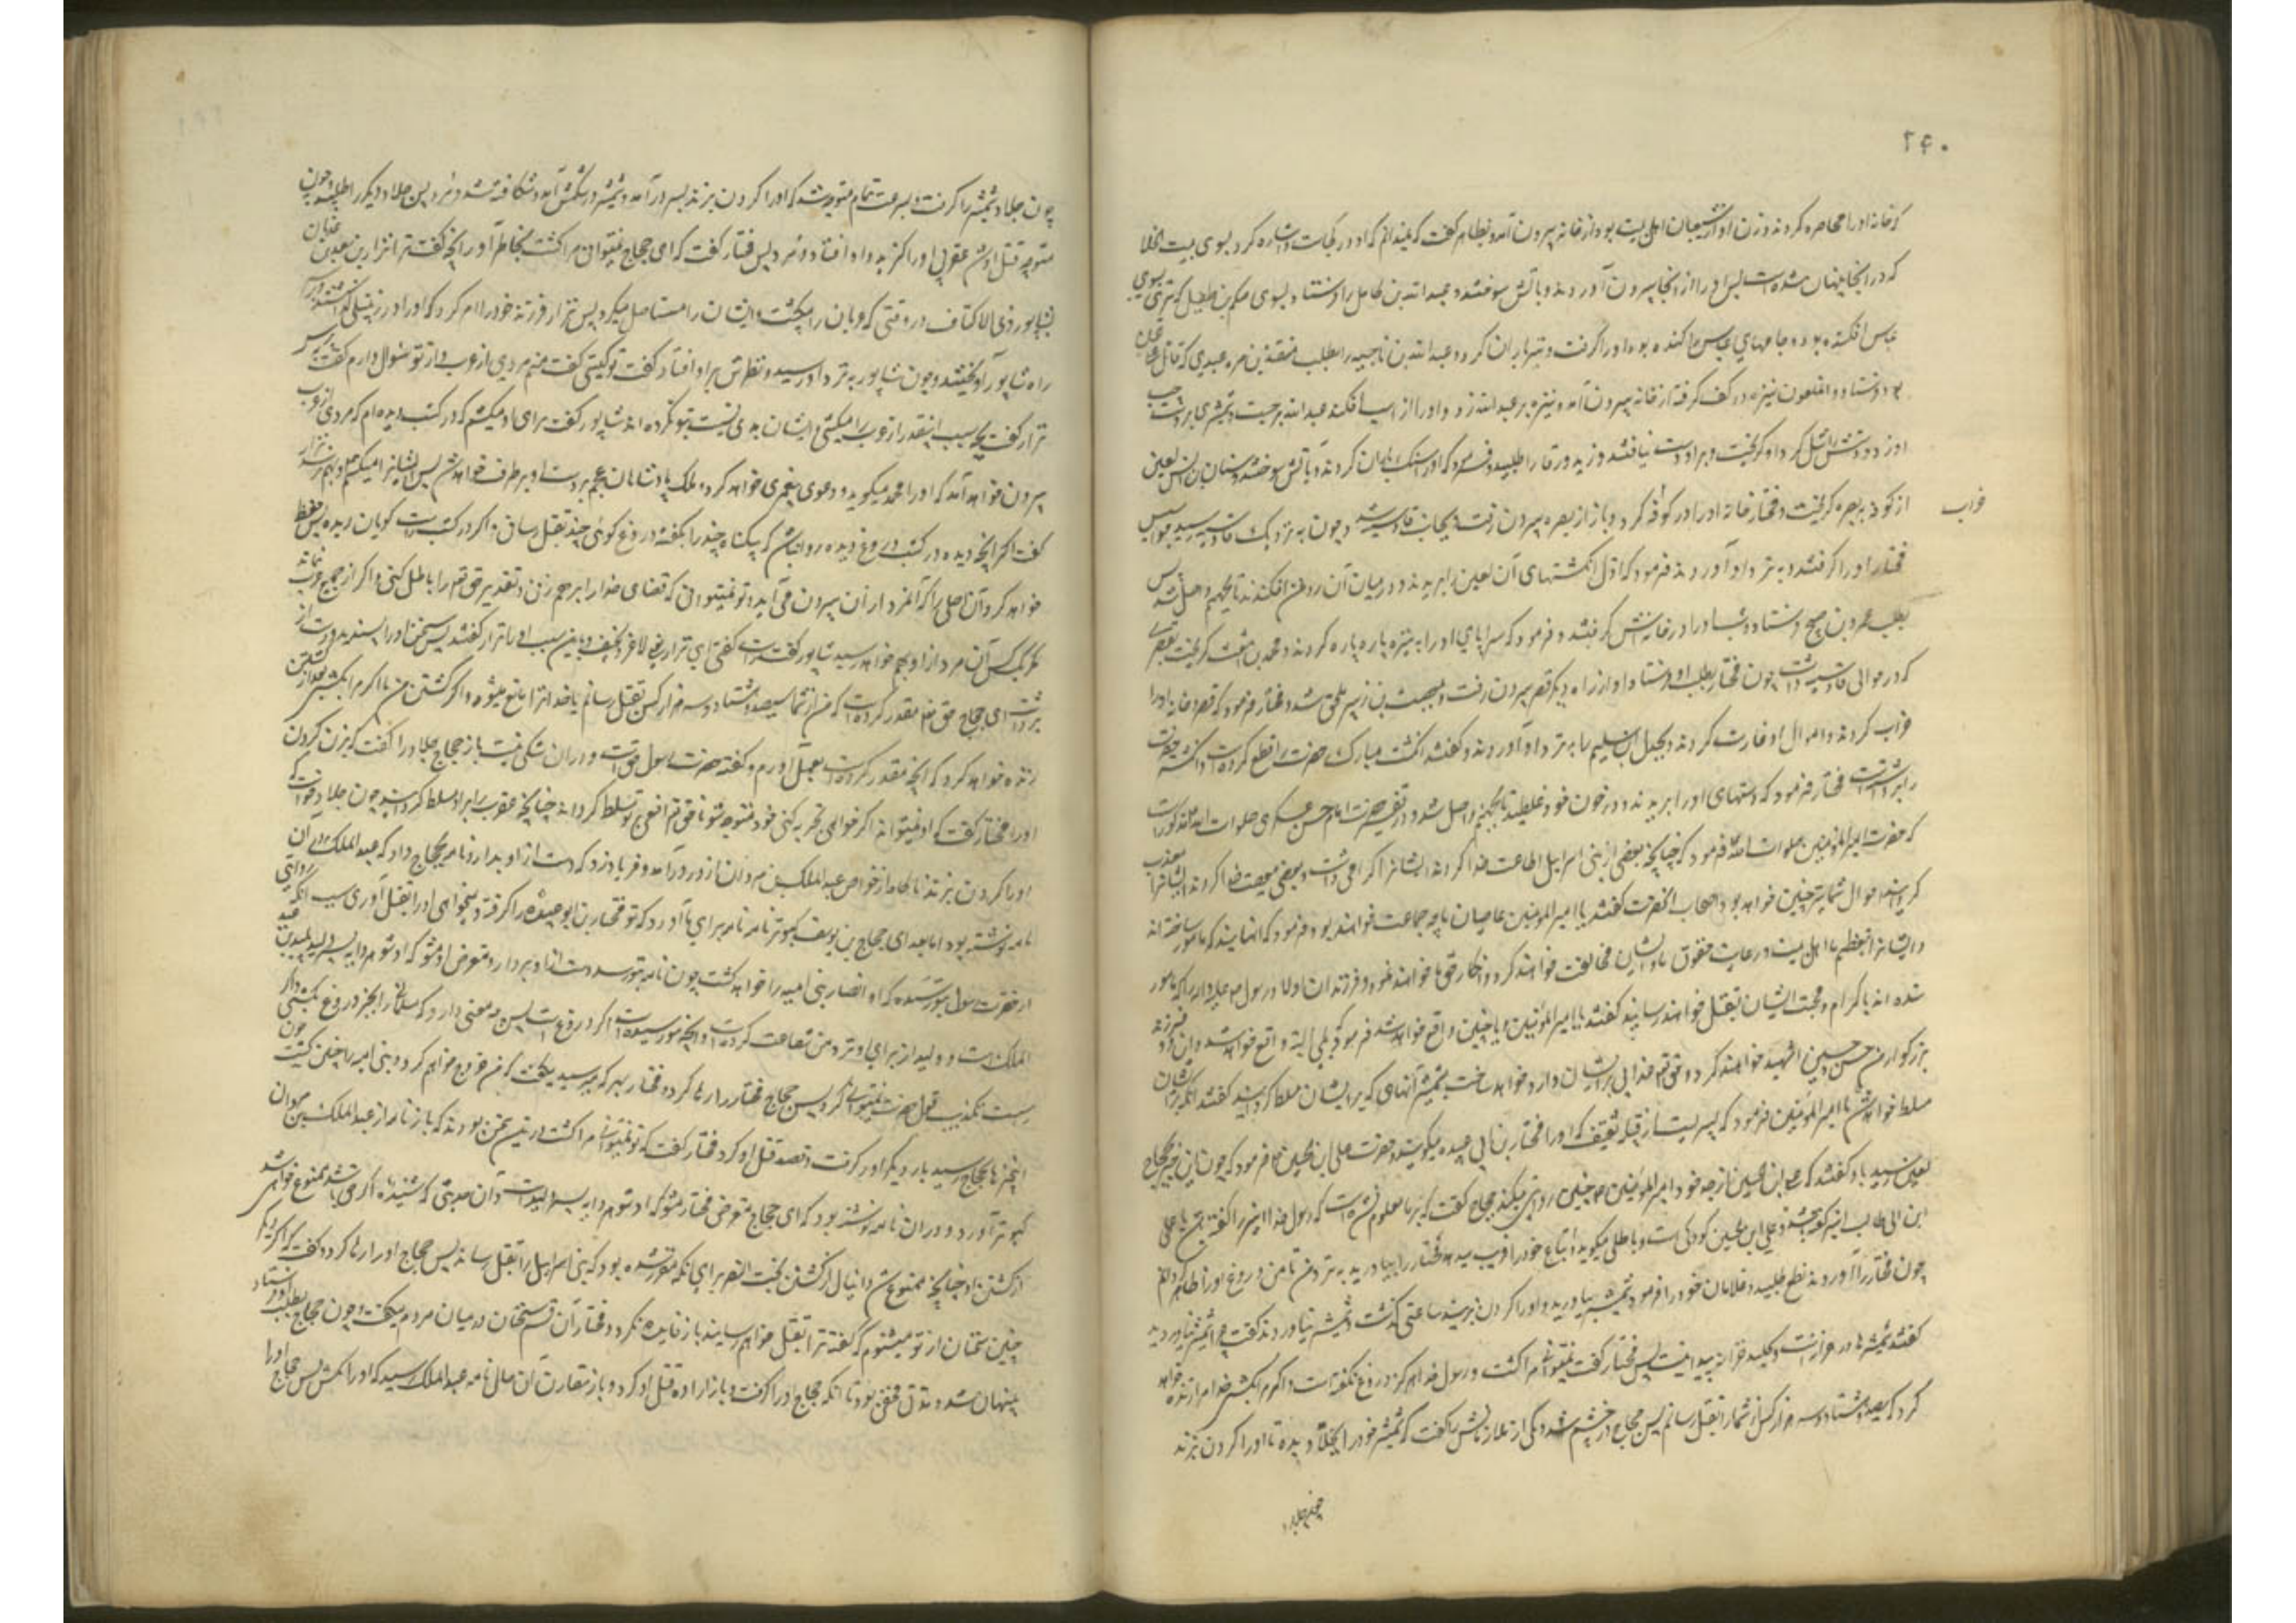 ۲۴۰
که خانه اورا محاصره کردند و زن او از شیعیان اهل بیت بود از خانه بیرون آمد و بظاهر گفت که نمیدانم که او در کجاست و اشاره کرد بسوی بیت الخلا
که در آنجا پنهان شده است پس او را از آنجا بیرون آوردند و بآتش سوختند و عبدالله بن کامل را فرستاد بسوی حکیم بن طفیل که تیری بسوی
عباس افکنده بود و جامهای عباس را کنده بود او را گرفت و تیرباران کرد و عبدالله بن ناجیه را بطلب منقذ بن مره عبدی که قاتل
بود فرستاد و آنملعون نیزه در کف گرفته از خانه بیرون آمد و نیزه بر عبدالله زد و او را از اسب افکند عبدالله برجست و شمشیری بر دست چپ
او زد و دستش را شل کرد و او گریخت و بر او دست نیافتند و زید ورقا را طلبید و فرمود که او را سنگ باران کردند و بآتش سوختند و سنان بن انس لعین
از کوفه ببصره گریخت و مختار خانه او را در کوفه خراب کرد و باز از بصره بیرون رفت بجانب قادسیه و چون به نزدیک قادسیه رسید جواسیس
مختار او را گرفتند و به نزد او آوردند فرمود که اول انگشتهای آن لعین را بریدند و در میان آن روغن افکندند تا بجهنم واصل شد پس
بطلب عمرو بن صبیح فرستاد و شب او را در خانه‌اش گرفتند و فرمود که سراپای او را به نیزه پاره پاره کردند و محمد بن اشعث گریخت بقصری
که در حوالی قادسیه داشت چون مختار بطلب او فرستاد او از راه دیگر قصر بیرون رفت و بمصعب بن زبیر ملحق شد و مختار فرمود که قصر و خانه او را
خراب کردند و اموال او غارت کردند و بجدل بن سلیم را به نزد او آوردند و گفتند انگشت مبارک حضرت را قطع کرده است و انگشتر حضرت
را برداشته است مختار فرمود که دستهای او را بریدند و در خون خود غلطید تا بجهنم واصل شد و در تفسیر حضرت امام حسن عسکری صلوات الله علیه مذکور است
که حضرت امیرالمؤمنین صلوات الله علیه فرمود که چنانچه بعضی از بنی اسرائیل اطاعت خدا کردند ایشانرا گرامی داشت و بعضی معصیت خدا کردند ایشانرا معذب
گردانید احوال شما نیز چنین خواهد بود اصحاب آنحضرت گفتند یا امیرالمؤمنین عاصیان ما چه جماعت خواهند بود فرمود که آنهایند که مأمور ساخته‌اند
و ایشانرا بتعظیم ما اهل بیت و رعایت حقوق ما و ایشان مخالفت خواهند کرد و انکار حق ما خواهند نمود و فرزندان اولاد رسول را که مأمور
شده‌اند باکرام و محبت ایشان بقتل خواهند رسانید گفتند یا امیرالمؤمنین آیا چنین واقع خواهد شد فرمود که بلی البته واقع خواهد شد و این دو فرزند
بزرگوار من حسن و حسین را شهید خواهند کرد و حق تعالی عذابی بر ایشان وارد خواهد ساخت بشمشیر آنهای که بر ایشان مسلط گرداند گفتند آنکه بر ایشان
مسلط خواهد شد یا امیرالمؤمنین فرمود که پسریست از قبیله ثقیف که او را مختار بن ابی عبیده میگویند و حضرت علی بن الحسین فرمود که چون این خبر بحجاج
لعین رسید باو گفتند که علی بن الحسین از جد خود امیرالمؤمنین چنین روایت میکند حجاج گفت که بر ما معلوم نشده است که رسول خدا این را گفته باشد یا علی
ابن ابی طالب این را گفته باشد و علی بن الحسین کودکی است و باطلی میگوید و اتباع خود را فریب میدهد مختار را بیاورید به نزد من تا من دروغ او را ظاهر گردانم
چون مختار را آوردند نطع طلبید و غلامان خود را فرمود شمشیر بیاورید و او را گردن بزنید ساعتی گذشت و شمشیر نیاوردند گفت چرا شمشیر نیاوردید
گفتند شمشیرها در خزانه است و کلید خزانه پیدا نیست پس مختار گفت نمیتوانی مرا کشت و رسول خدا هرگز دروغ نگفته است و اگر مرا بکشی خدا مرا زنده خواهد
کرد که سیصد و هشتاد و سه هزار کس از شما را بقتل رسانم پس حجاج در خشم شد و یکی از ملازمانش را گفت که شمشیر خود را بجلاد بده تا او را گردن بزند
چون جلاد
خراب
چون جلاد شمشیر را گرفت و بسرعت تمام متوجه شد که او را گردن بزند بسر در آمد و شمشیر در شکمش آمد و شکافته شد و مرد پس جلاد دیگر را طلبید و چون
متوجه قتل او شد عقربی او را گزید و او افتاد و مرد پس مختار گفت که ای حجاج نمیتوانی مرا کشت بخاطر آور آنچه گفت نزار بن معد بن عدنان
بشاپور ذی الاکتاف در وقتی که عربان را میکشت و ایشان را مستأصل میکرد پس نزار فرزند خود را امر کرد که او را در زنبیلی گذاشتند و بر سر
راه شاپور آویختند و چون شاپور به نزد او رسید و نظرش بر او افتاد گفت تو کیستی گفت منم مردی از عرب و از تو سؤال دارم گفت بپرس
نزار گفت بچه سبب اینقدر از عرب را میکشی و ایشان بدی نسبت بتو نکرده‌اند شاپور گفت برای آن میکشم که در کتب دیده‌ام که مردی از عرب
بیرون خواهد آمد که او را محمد میگویند و دعوی پیغمبری خواهد کرد و ملک پادشاهان عجم بر دست او برطرف خواهد شد پس ایشانرا میکشم تا او بهم نرسد نزار
گفت اگر آنچه دیده در کتب دروغ دیده روا نباشد که بیگناه چند را بگفته دروغ گوئی چند بقتل رسانی و اگر در کتب راست گویان دیده پس حفظ
خواهد کرد آن اصلی را که آنمرد از آن بیرون می‌آید و تو نمیتوانی که قضای خدا را برهم زنی و تقدیر حق تعالی را باطل کنی و اگر از جمیع عرب نماند
مگر یک کس آن مرد از او بهم خواهد رسید شاپور گفت راست گفتی ای نزار یعنی لاغر و نحیف و باین سبب او را نزار گفتند پس سخن او را پسندید و دست از
برداشت ای حجاج حق تعالی مقدر کرده است که من از شما سیصد و هشتاد و سه هزار کس بقتل رسانم یا خدا ترا مانع میشود از کشتن من یا اگر مرا بکشی بعد از کشتن
زنده خواهد کرد که آنچه مقدر کرده است بعمل آورم و گفته حضرت رسول حق است و در آن شکی نیست باز حجاج جلاد را گفت که بزن گردن
او را مختار گفت که او نمیتواند اگر خواهی تجربه کنی خود متوجه شو تا حق تعالی افعی بر تو مسلط گرداند چنانچه عقرب را بر او مسلط گردانید چون جلاد خواست که
او را گردن بزند ناگاه از خواص عبدالملک بن مروان از در درآمد و فریاد زد که دست از او بدارید و نامه بحجاج داد که عبدالملک در آن
نامه نوشته بود اما بعد ای حجاج بن یوسف کبوتر نامه‌بر برای ما آورد که تو مختار بن ابوعبیده را گرفته و میخواهی او را بقتل آوری بسبب آنکه روایتی
از حضرت رسول بتو رسیده که او انصار بنی امیه را خواهد کشت چون نامه بتو رسد دست از او بردار و متعرض او مشو که او شوهر دایه پسرم ولید بن عبد
الملک است و ولید از برای او نزد من شفاعت کرده است و آنچه بتو رسیده است اگر دروغ است پس چه معنی دارد که مسلمانی را بخبر دروغی بکشی و اگر
راست است تکذیب قول حضرت نمیتوانی کرد پس حجاج مختار را رها کرد و مختار بهر که میرسید میگفت که من خروج خواهم کرد و بنی امیه را چنین خواهم کشت چون
این خبرها بحجاج رسید بار دیگر او را گرفت و قصد قتل او کرد مختار گفت که تو نمیتوانی مرا کشت در این سخن بودند که باز نامه از عبدالملک بن مروان
کبوتر آورد و در آن نامه نوشته بود که ای حجاج متعرض مختار مشو که او شوهر دایه پسرم ولید است و آن حدیثی که شنیده اگر حق باشد ممنوع خواهی شد
از کشتن او چنانچه ممنوع شد دانیال از کشتن بخت النصر برای آنکه مقرر شده بود که بنی اسرائیل را بقتل رساند پس حجاج او را رها کرد و گفت که اگر دیگر
چنین سخنان از تو میشنوم که گفته ترا بقتل خواهم رسانید باز فایده نکرد و مختار آن قسم سخنان در میان مردم میگفت و چون حجاج بطلب او فرستاد
پنهان شد و مدتی مخفی بود تا آنکه حجاج او را گرفت و باز اراده قتل او کرد و باز مقارن آن حال نامه عبدالملک رسید که او را مکش پس حجاج او را